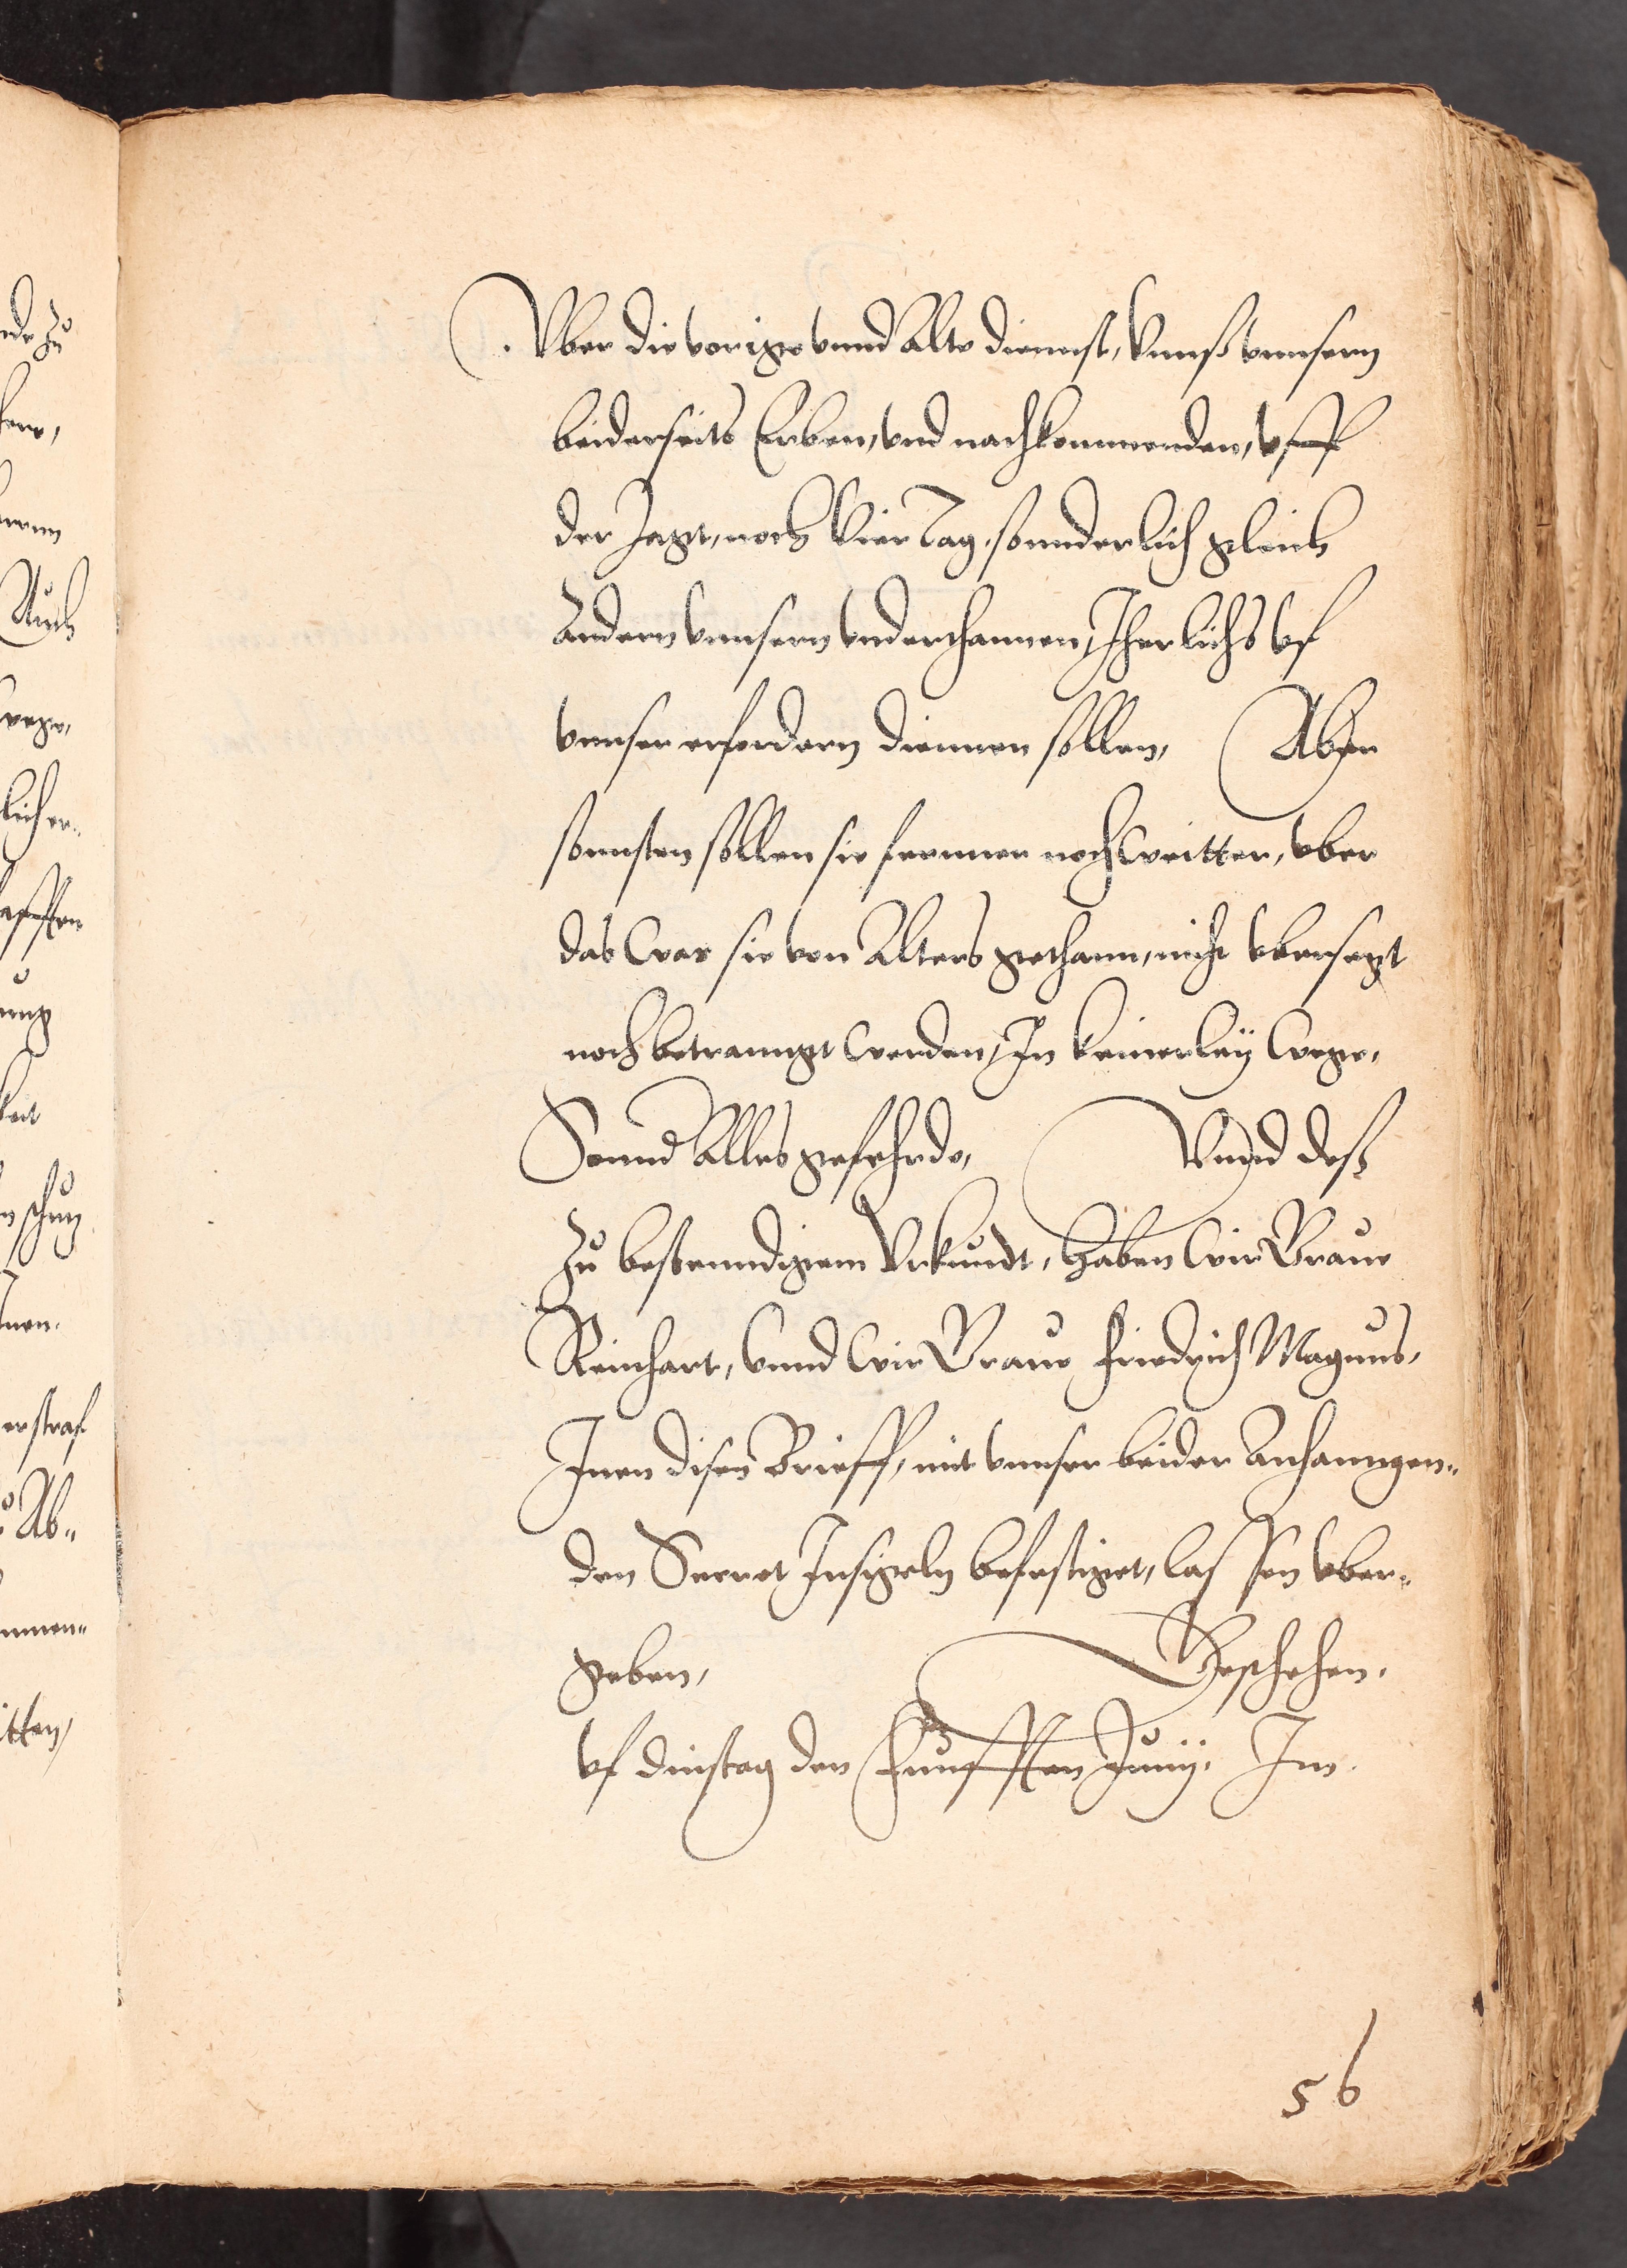 Vber die vorige vnnd Alte dienst, Vnnß vnnsern
beiderseits Erben, vnd nachkommenden, vff
der Jagt, noch Vier Tag, sonnderlich gleich
Andern vnnsern vnderthannen, Jherlichs vf
vnnser erfordern diennen sollen, Aber
sonnsten sollen sie ferner noch weitter, vber
das was sie von Alters gethann, nicht vbersezt
noch betranngt werden, In keinerley wege,
Sonnd Alles geferhrde, Vnnd deß
zu bestenndigem Vrkundt, haben wir Graue
Reinhart, vnnd wir Graue Friedrich Magnus,
Inen disen Brieff, mit vnnser beider Anhanngen„
den Secret Insigeln befestiget, lassen vber„
geben, Geschehen,
vf dinstag den Funfften Junij, Im
56
nde zu
Auch
wege,
licher
keit
schutz
nen.
er straf
Ab„
mmen„
itten,